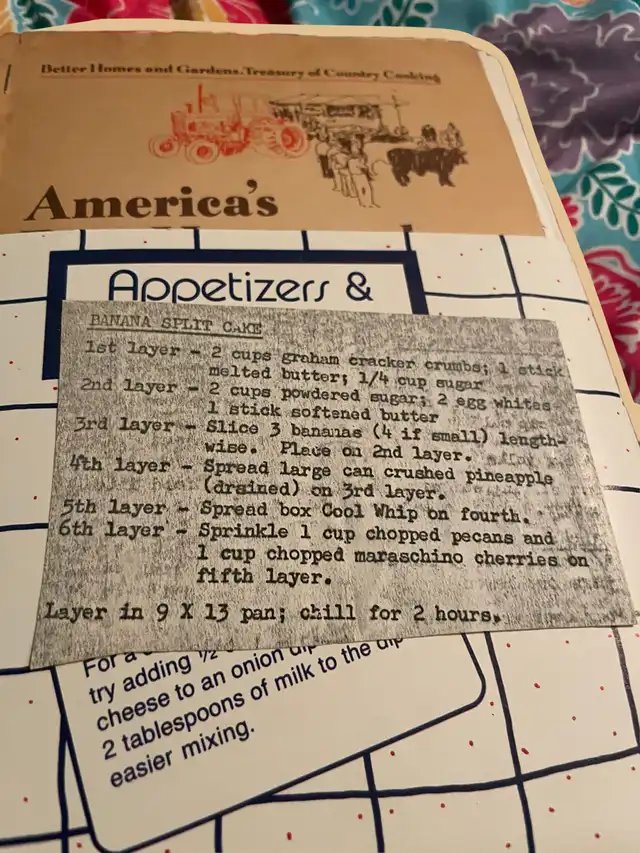 Better Homes and Gardens. Treasury of Country Cooking
America's
Appetizers &
BANANA SPLIT CAKE
1st layer - 2 cups graham cracker crumbs; 1 stick
melted butter; 1/4 cup sugar
2nd layer - 2 cups powdered sugar; 2 egg whites
1 stick softened butter
3rd layer - Slice 3 bananas (4 if small) length-
wise. Place on 2nd layer.
4th layer - Spread large can crushed pineapple
(drained) on 3rd layer.
5th layer - Spread box Cool Whip on fourth.
6th layer - Sprinkle 1 cup chopped pecans and
1 cup chopped maraschino cherries on
fifth layer.
Layer in 9 X 13 pan; chill for 2 hours.
For a
try adding ½
cheese to an onion dip
2 tablespoons of milk to the dip
easier mixing.